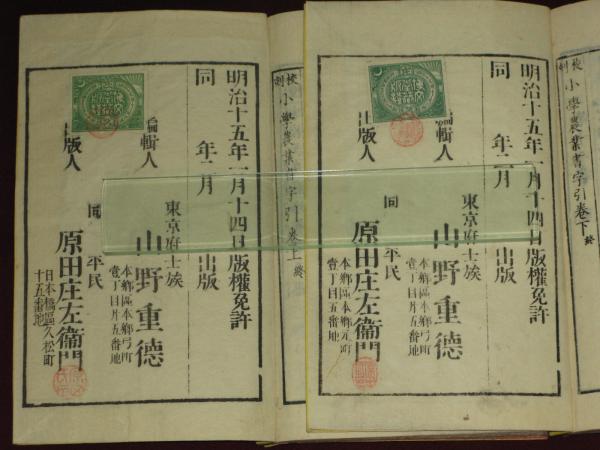 校刻 小學農業書字引卷下 終
明治十五年一月十四日版權免許
同 年二月 出版
東京府士族
編輯人 山野重德
本鄉區本鄉元町
壹丁目廿五番地
同 平民
出版人 原田庄左衞門
校刻 小學農業書字引卷上 終
明治十五年一月十四日版權免許
同 年二月 出版
東京府士族
編輯人 山野重德
本鄉區本鄉弓町
壹丁目廿五番地
同 平民
出版人 原田庄左衞門
日本橋區久松町
十五番地